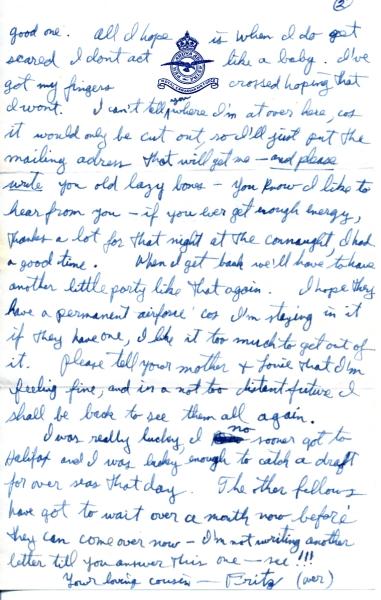 2
good one. All I hope is when I do get
scared I don't act like a baby. I've
got my fingers crossed hoping that
I wont. I can't tell you where I'm at over here, cos
it would only be cut out, so I'll just put the
mailing adress that will get me – and please
write you old lazy bones – you know I like to
hear from you – if you ever get enough energy,
thanks a lot for that night at the connaught, I had
a good time. When I get back we'll have to have
another little party like that again. I hope they
have a permanent airforce 'cos I'm staying in it
if they have one, I like it too much to get out of
it. Please tell your mother & Louie that I'm
feeling fine, and in a not too distant future I
shall be back to see them all again.
I was really lucky, I no sooner got to
Halifax and I was lucky enough to catch a draft
for over seas that day. The other fellows
have got to wait over a month now before
they can come over now – I'm not writing another
letter till you answer this one – see!!!
Your loving cousin – Fritz (over)